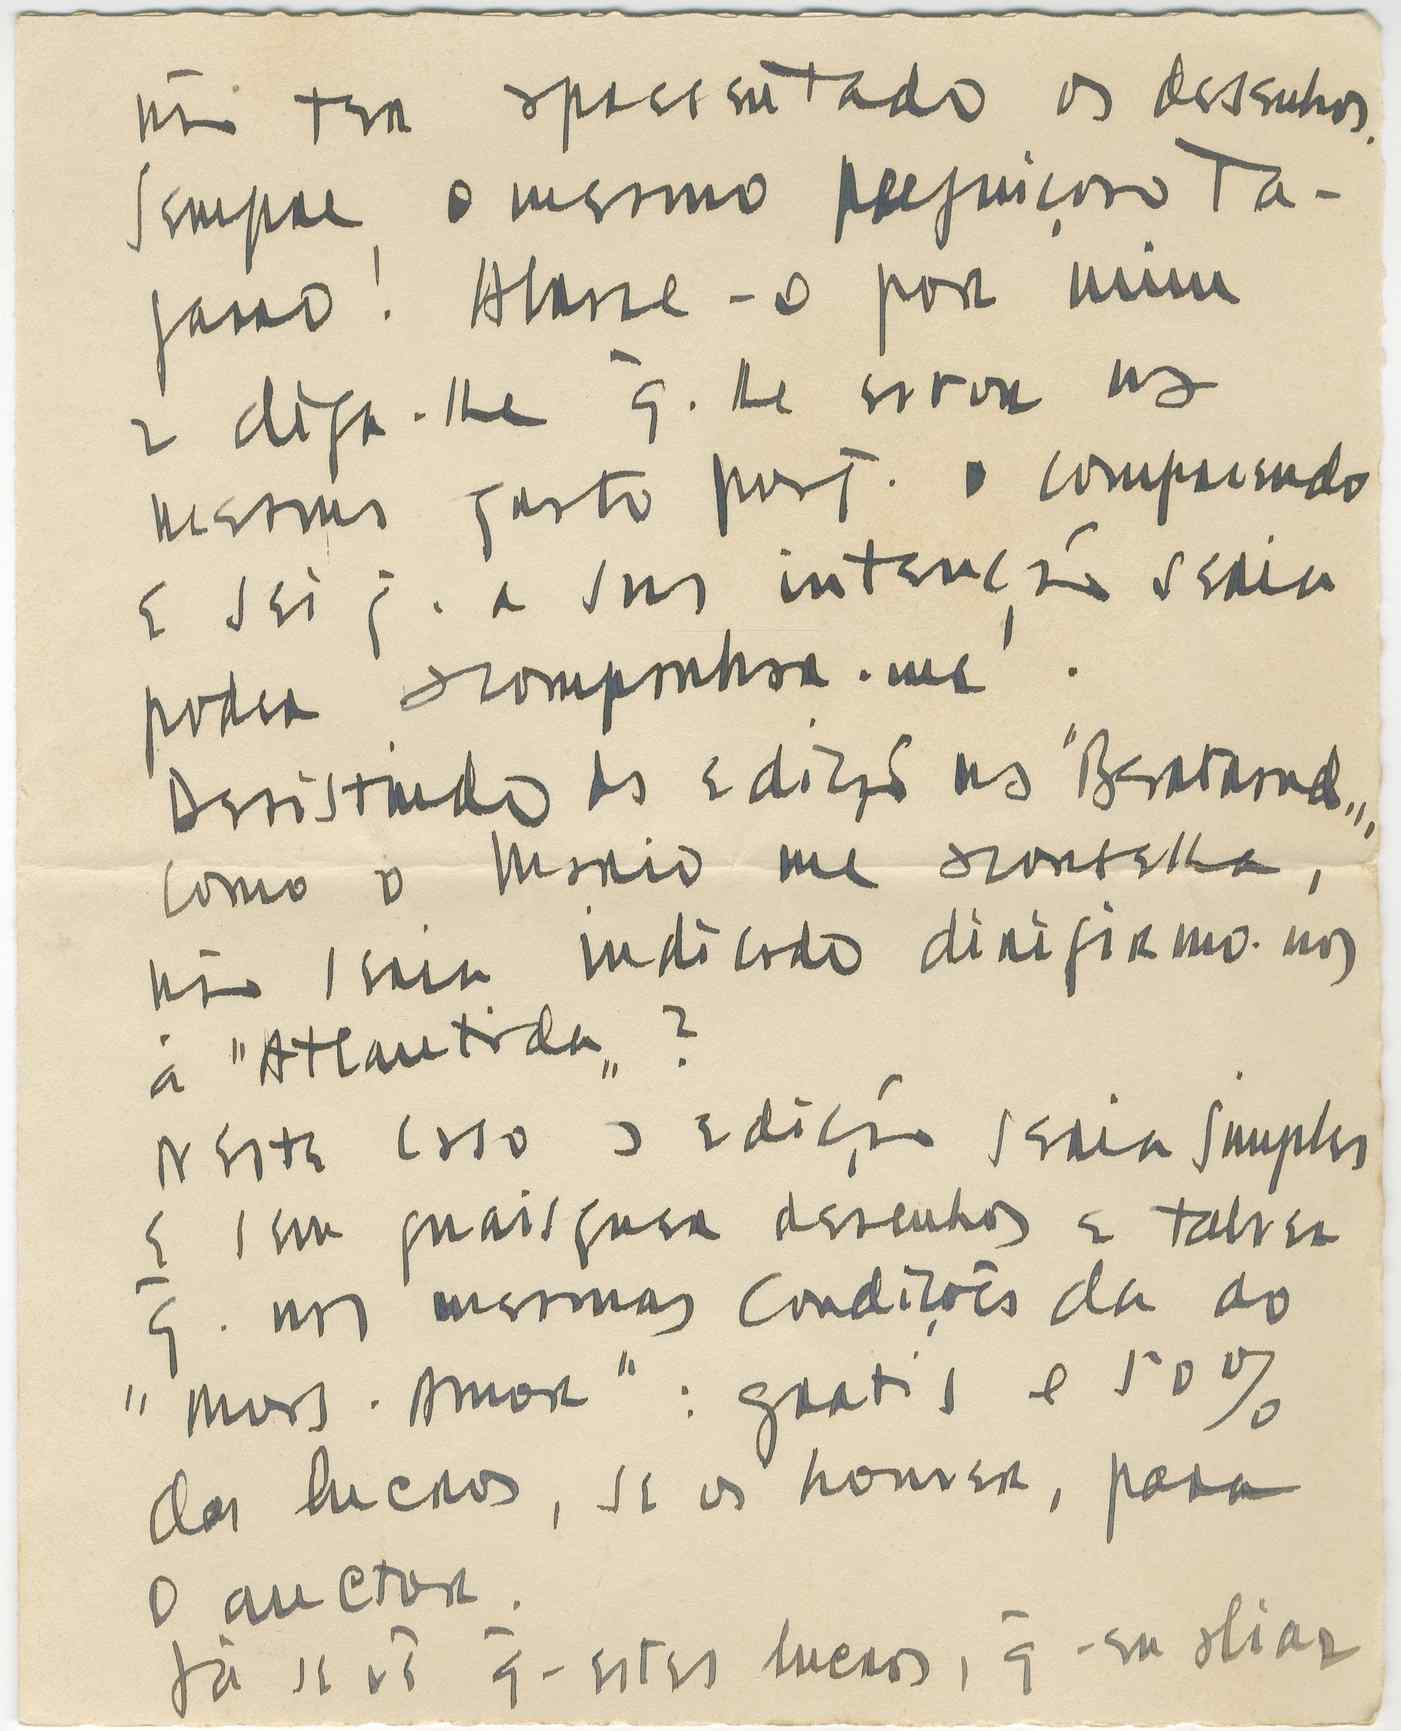 não ter apresentado os desenhos.
Sempre o mesmo preguiçoso Ta-
garro! Abrace-o por mim
e diga-lhe q̃. lhe estou na
mesma grato porq̃. o comprendo
e sei q̃. a sua intenção seria
poder acompanhar-me.
Desistindo da edição na "Bertrand",
como o Mario me aconselha,
não seria indicado dirigirmo-nos
á "Atlantida"?
Neste caso a edição seria simples
e sem quaisquer desenhos e talvez
q̃. nas mesmas condições da do
"Mors-Amor": gratis e 50%
dos lucros, se os houver, para
o auctor.
Já se vê q̃-estes lucros, q̃-eu aliaz